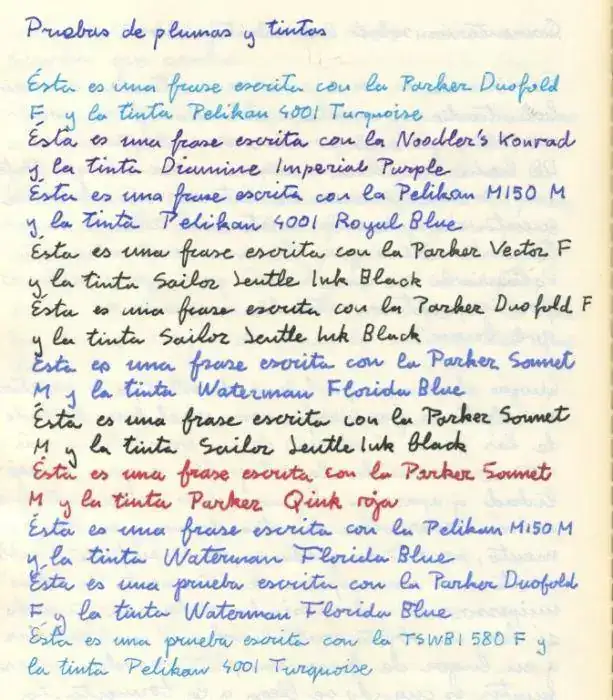 Pruebas de plumas y tintas
Ésta es una frase escrita con la Parker Duofold
F y la tinta Pelikan 4001 Turquoise
Ésta es una frase escrita con la Noodler's Konrad
y la tinta Diamine Imperial Purple
Ésta es una frase escrita con la Pelikan M150 M
y la tinta Pelikan 4001 Royal Blue
Ésta es una frase escrita con la Parker Vector F
y la tinta Sailor Jentle Ink Black
Ésta es una frase escrita con la Parker Duofold F
y la tinta Sailor Jentle Ink Black
Ésta es una frase escrita con la Parker Sonnet
M y la tinta Waterman Florida Blue
Ésta es una frase escrita con la Parker Sonnet
M y la tinta Sailor Jentle Ink Black
Ésta es una frase escrita con la Parker Sonnet
M y la tinta Parker Qink roja
Ésta es una frase escrita con la Pelikan M150 M
y la tinta Waterman Florida Blue
Ésta es una prueba escrita con la Parker Duofold
F y la tinta Waterman Florida Blue
Ésta es una prueba escrita con la TSWBI 580 F y
la tinta Pelikan 4001 Turquoise